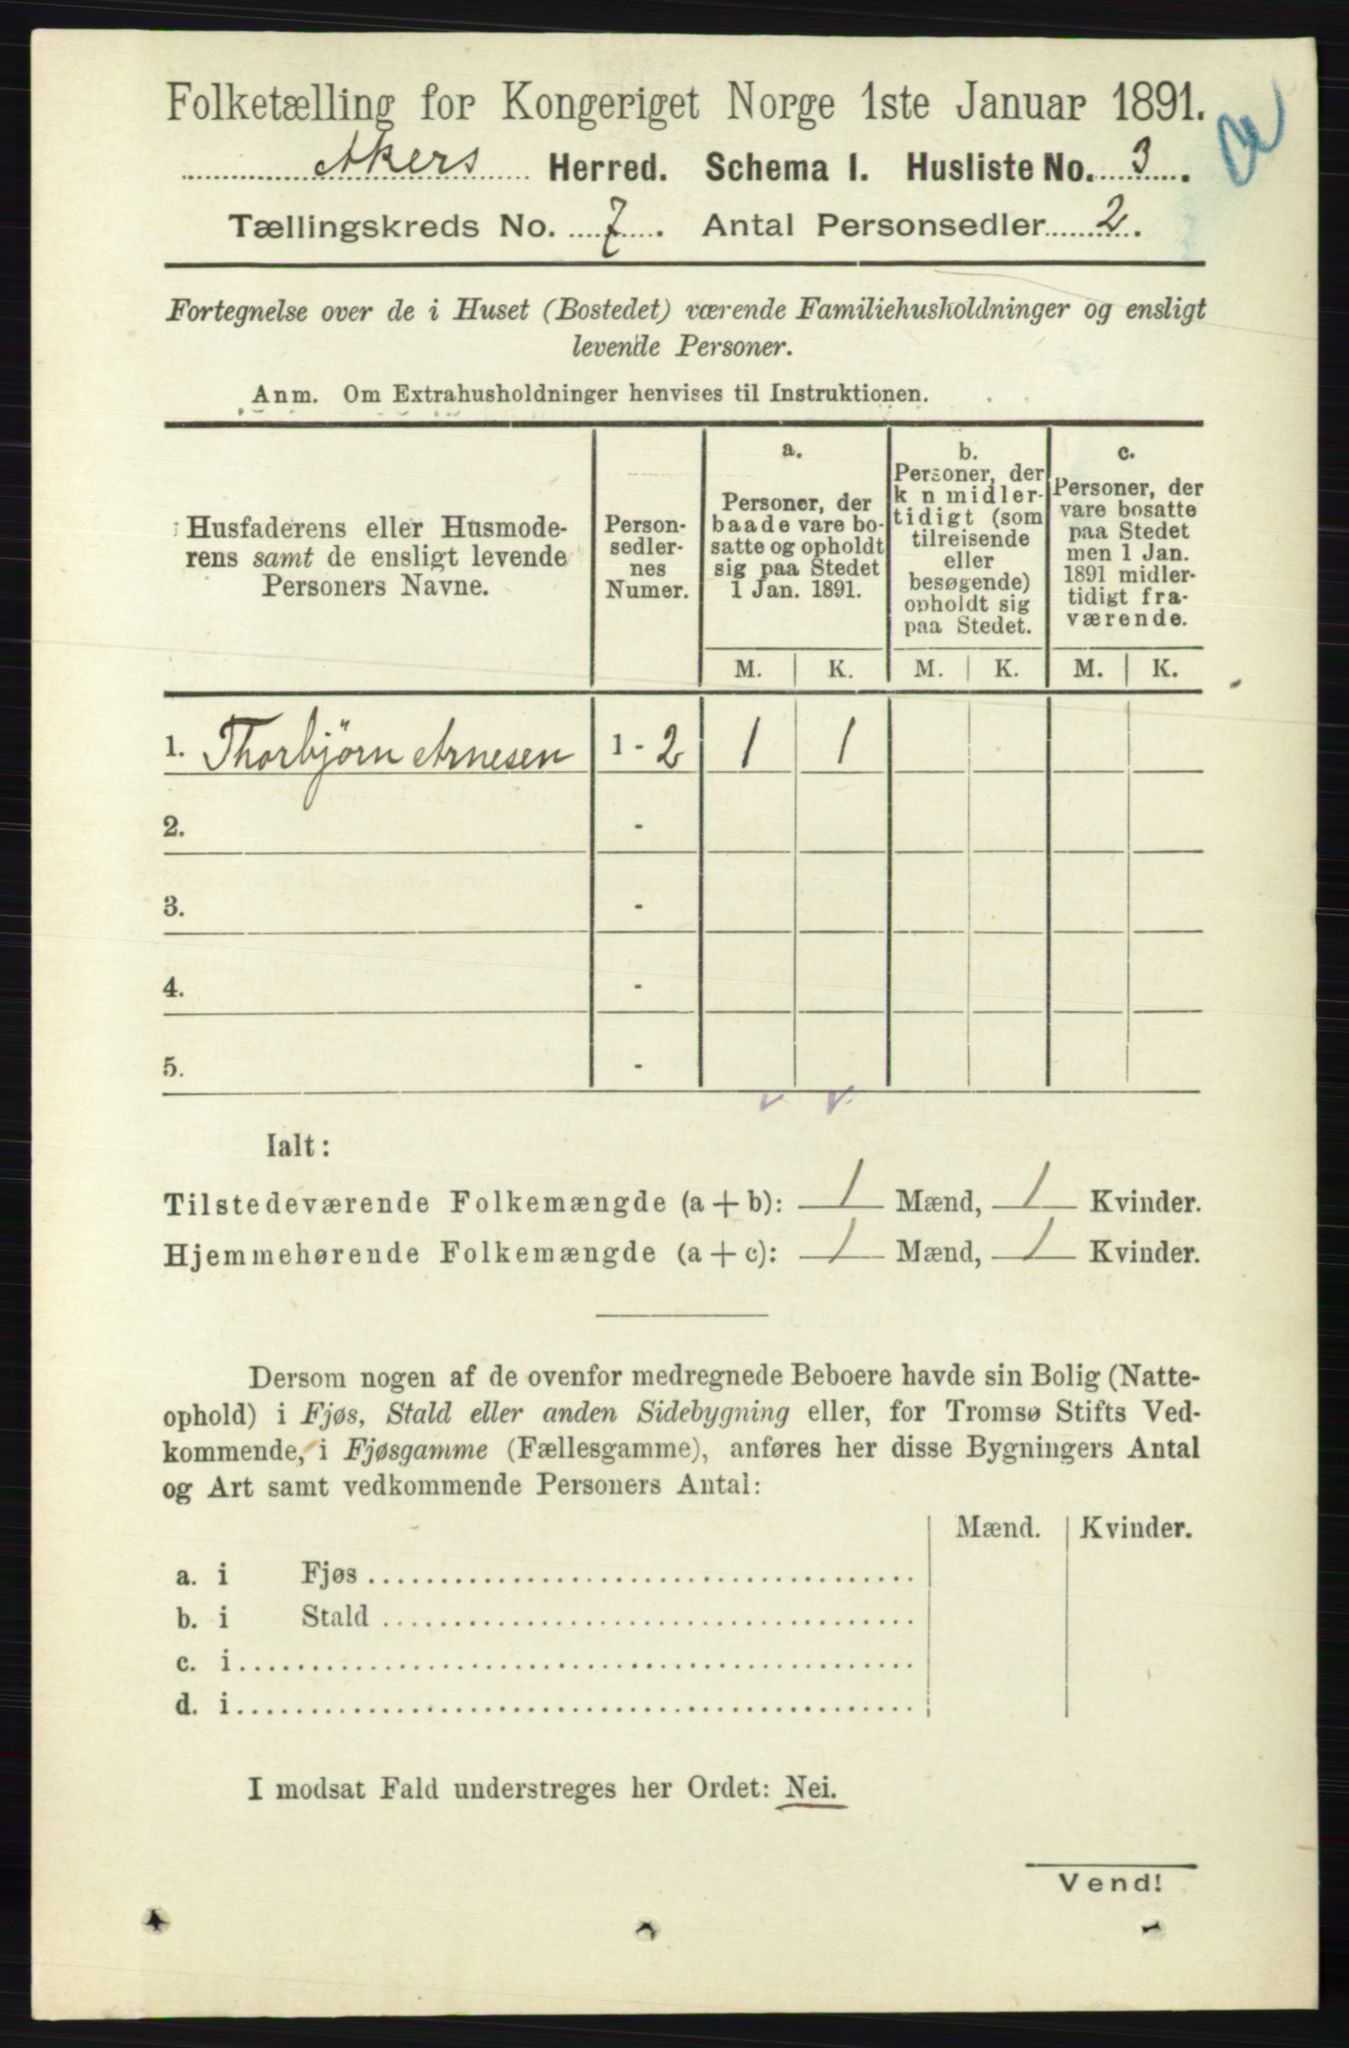 Folketælling for Kongeriget Norge 1ste Januar 1891.
Akers Herred. Schema I. Husliste No. 3.
Tællingskreds No. 7. Antal Personsedler 2.
Fortegnelse over de i Huset (Bostedet) værende Familiehusholdninger og ensligt
levende Personer.
Anm. Om Extrahusholdninger henvises til Instruktionen.
Husfaderens eller Husmode-
rens samt de ensligt levende
Personers Navne.
Person-
sedler-
nes
Numer.
a.
Personer, der
baade vare bo-
satte og opholdt
sig paa Stedet
1 Jan. 1891.
b.
Personer, der
k n midler-
tidigt (som
tilreisende
eller
besøgende)
opholdt sig
paa Stedet.
c.
Personer, der
vare bosatte
paa Stedet
men 1 Jan.
1891 midler-
tidigt fra-
værende.
M. K. M. K. M. K.
1. Thorbjörn Arnesen 1 - 2 1 1
2. -
3. -
4. -
5. -
Ialt:
Tilstedeværende Folkemængde (a + b): 1 Mænd, 1 Kvinder.
Hjemmehørende Folkemængde (a + c): 1 Mænd, 1 Kvinder.
Dersom nogen af de ovenfor medregnede Beboere havde sin Bolig (Natte-
ophold) i Fjøs, Stald eller anden Sidebygning eller, for Tromsø Stifts Ved-
kommende, i Fjøsgamme (Fællesgamme), anføres her disse Bygningers Antal
og Art samt vedkommende Personers Antal:
Mænd. Kvinder.
a. i Fjøs
b. i Stald
c. i
d. i
I modsat Fald understreges her Ordet: Nei.
Vend!